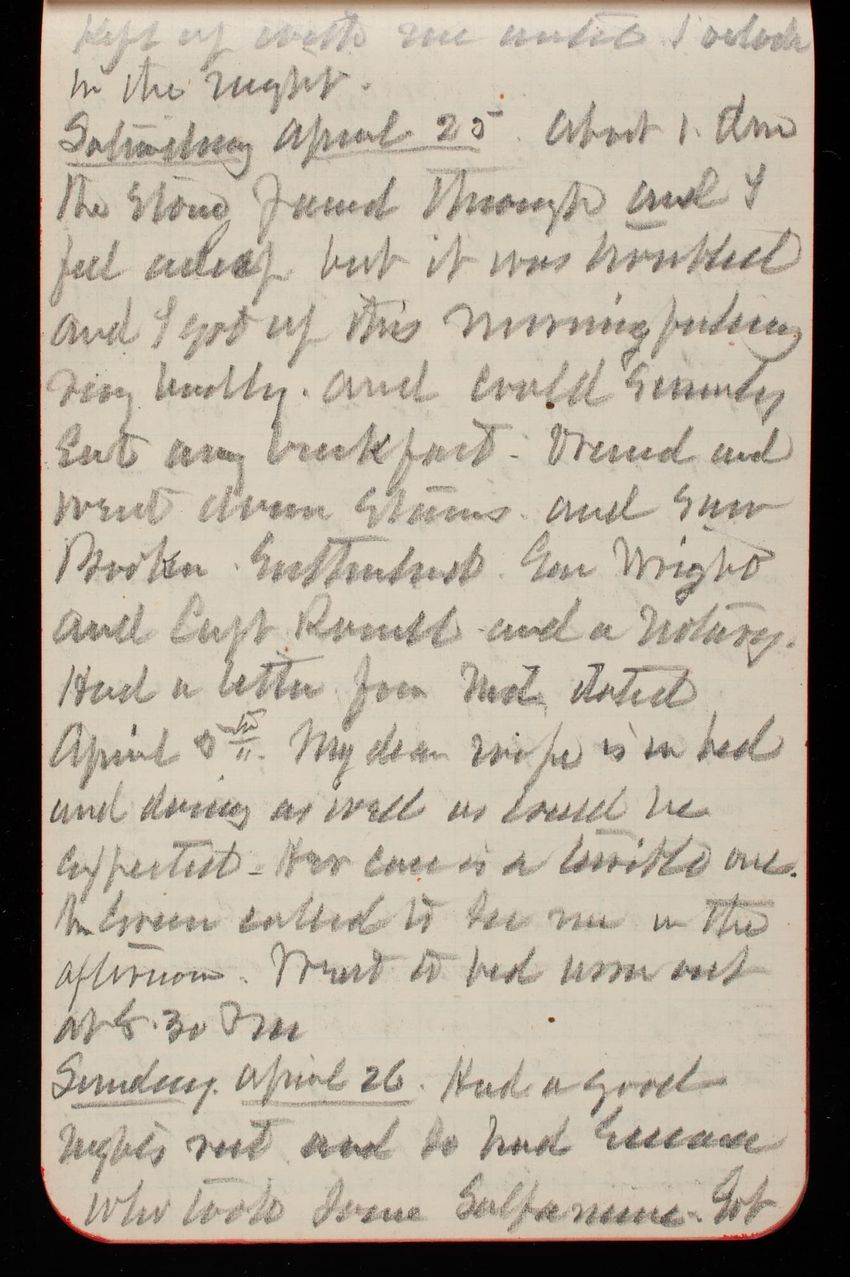 Kept up with me until 1 o'clock
in the night.
Saturday April 25. About 1. Am
the stone passed through and I
fell asleep but it was troubled
and I got up this morning feeling
very badly. and could scarcely
Eat any breakfast. Dressed and
went down stairs and saw
Gen Wright
and Capt and a Notary.
Had a letter from dated
April 5th. My dear wife is in bed
and doing as well as could be
expected - Her case is a terrible one.
Green called to see me in the
afternoon. Went to bed worn out
at 8.30 Pm
Sunday. April 26. Had a good
nights rest and so had
who took some Sulfanine. Got